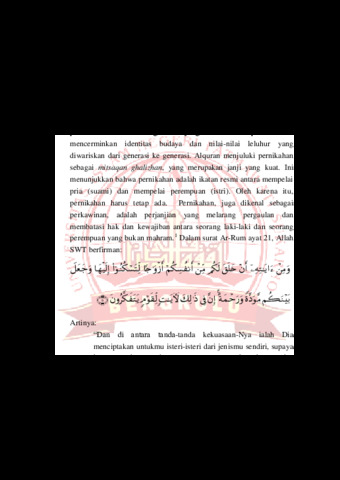 mencerminkan identitas budaya dan nilai-nilai leluhur yang
diwariskan dari generasi ke generasi. Alquran menjuluki pernikahan
sebagai mitsaqan ghalizhan, yang merupakan janji yang kuat. Ini
menunjukkan bahwa pernikahan adalah ikatan resmi antara mempelai
pria (suami) dan mempelai perempuan (istri). Oleh karena itu,
pernikahan harus tetap ada. Pernikahan, juga dikenal sebagai
perkawinan, adalah perjanjian yang melarang pergaulan dan
membatasi hak dan kewajiban antara seorang laki-laki dan seorang
perempuan yang bukan mahram. Dalam surat Ar-Rum ayat 21, Allah
SWT berfirman:
وَمِنْ ءَايَـٰتِهِۦٓ أَنْ خَلَقَ لَكُم مِّنْ أَنفُسِكُمْ أَزْوَٰجًا لِّتَسْكُنُوٓا۟ إِلَيْهَا وَجَعَلَ
بَيْنَكُم مَّوَدَّةً وَرَحْمَةً ۚ إِنَّ فِى ذَٰلِكَ لَـَٔايَـٰتٍ لِّقَوْمٍ يَتَفَكَّرُونَ
Artinya:
"Dan di antara tanda-tanda kekuasaan-Nya ialah Dia
menciptakan untukmu isteri-isteri dari jenismu sendiri, supaya
BENGKULU